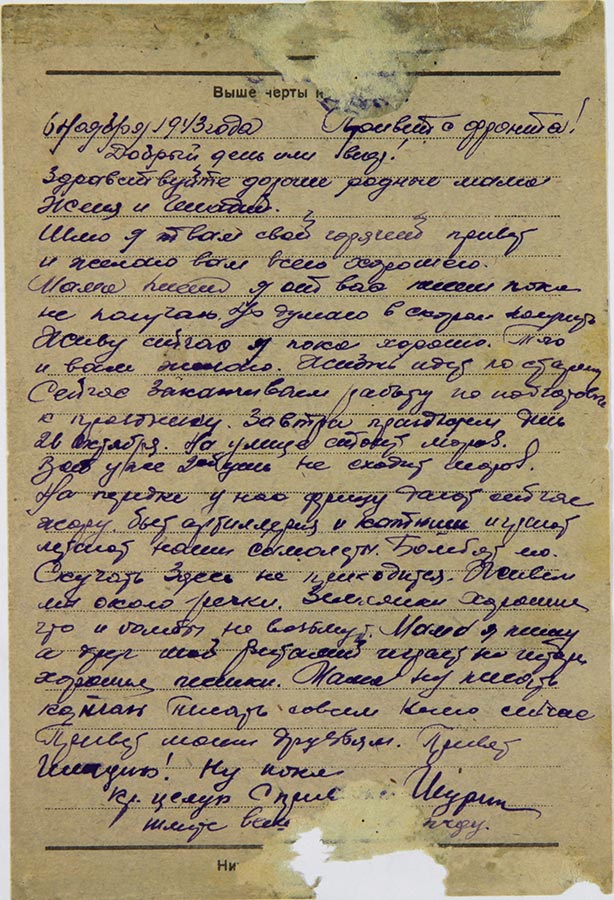 Выше черты н
6 Ноября 1943 года Привет с фронта!
Добрый день или вечер!
Здравствуйте дорогие родные мама
Женя и
Шлю я вам свой горячий привет
и желаю вам всего хорошего.
Мама писем я от вас писем пока
не получаю. Но думаю в скором получить
Живу сейчас я пока хорошо. Того
и вам желаю. Жизнь идет по старому
Сейчас заканчиваем работу по подготовке
к празднику. Завтра празднуем день
26 октября. На улице стоит мороз.
уже не сходит мороз.
На передке у нас фрицу дают сейчас
жару. бьет артиллерия и катюши играют
летают наши самолеты. Бомбят его.
Скучать здесь не приходится. Живем
мы около речки. Землянки хорошие
что и бомбы не возьмут. Мама я пишу
а друг мой Виталий играет на гитаре
хорошие песенки. Мама ну писать
кончаю писать совсем сейчас
Привет моим друзьям. Привет
! Ну пока
кр. целую с прив Шурик
жду.
Ни